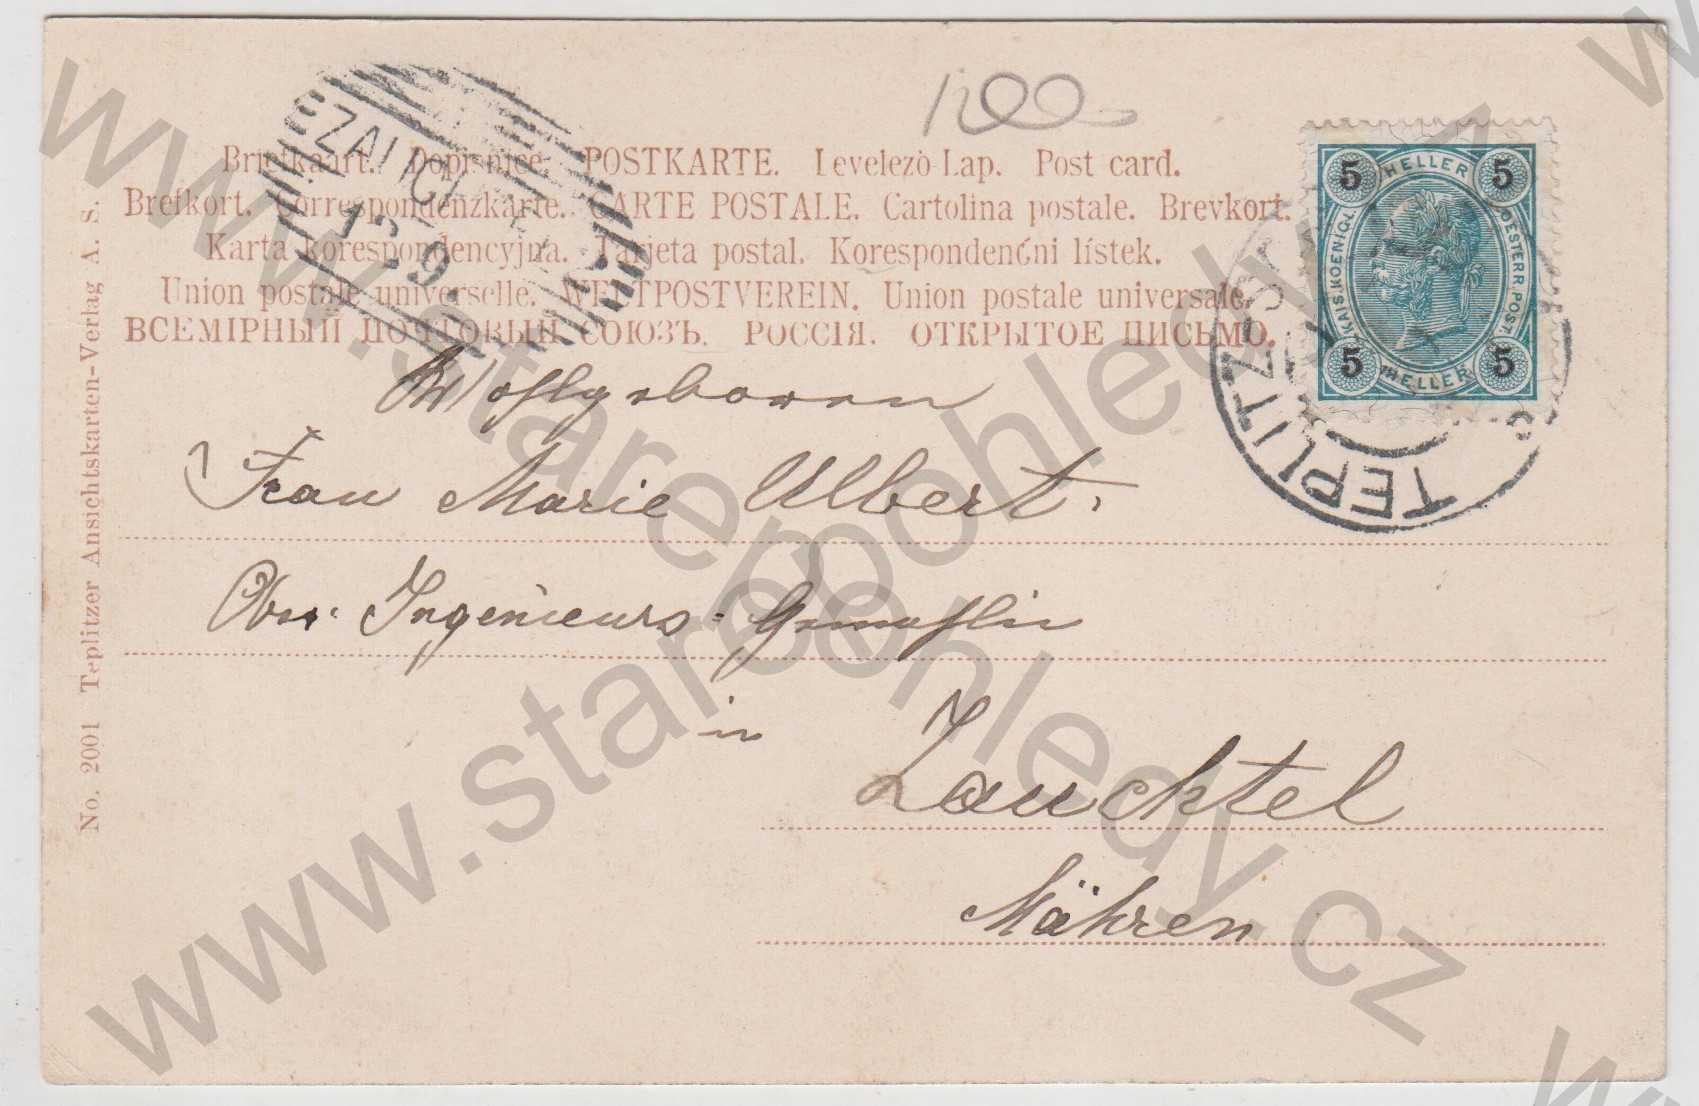 1200
Briefkaart. Dopisnice. POSTKARTE. Levelezò-Lap. Post card.
Brefkort. Correspondenzkarte. CARTE POSTALE. Cartolina postale. Brevkort.
Karta korespondencyjna. Tarjeta postal. Korespondenćni lístek.
Union postale universelle. WELTPOSTVEREIN. Union postale universale.
ВСЕМІРНЫЙ ПОЧТОВЫЙ СОЮЗЪ. РОССІЯ. ОТКРЫТОЕ ПИСЬМО.
5 HELLER 5
KAIS. KOENIGL. OESTERR. POST.
5 HELLER 5
TEPLITZ
Wohlgeboren
Frau Marie Ulbert.
Ober-Ingenieurs-Gemahlin
in
Zauchtel
Mähren
No. 2001 Teplitzer Ansichtskarten-Verlag A. S.
www.starepohledy.cz
www.starepohledy.cz